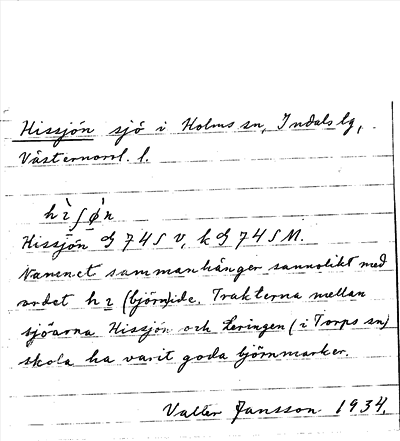 Hissjön sjö i Holms sn, Indals lg,
Västernorrl. l.
hìʃø̀n
Hissjön G 74 S V, k G 74 S M.
Namnet sammanhänger sannolikt med
ordet hı (björn)ide. Trakterna mellan
sjöarna Hissjön och Leringen (i Torps sn)
skola ha varit goda björnmarker.
Valter Jansson 1934.